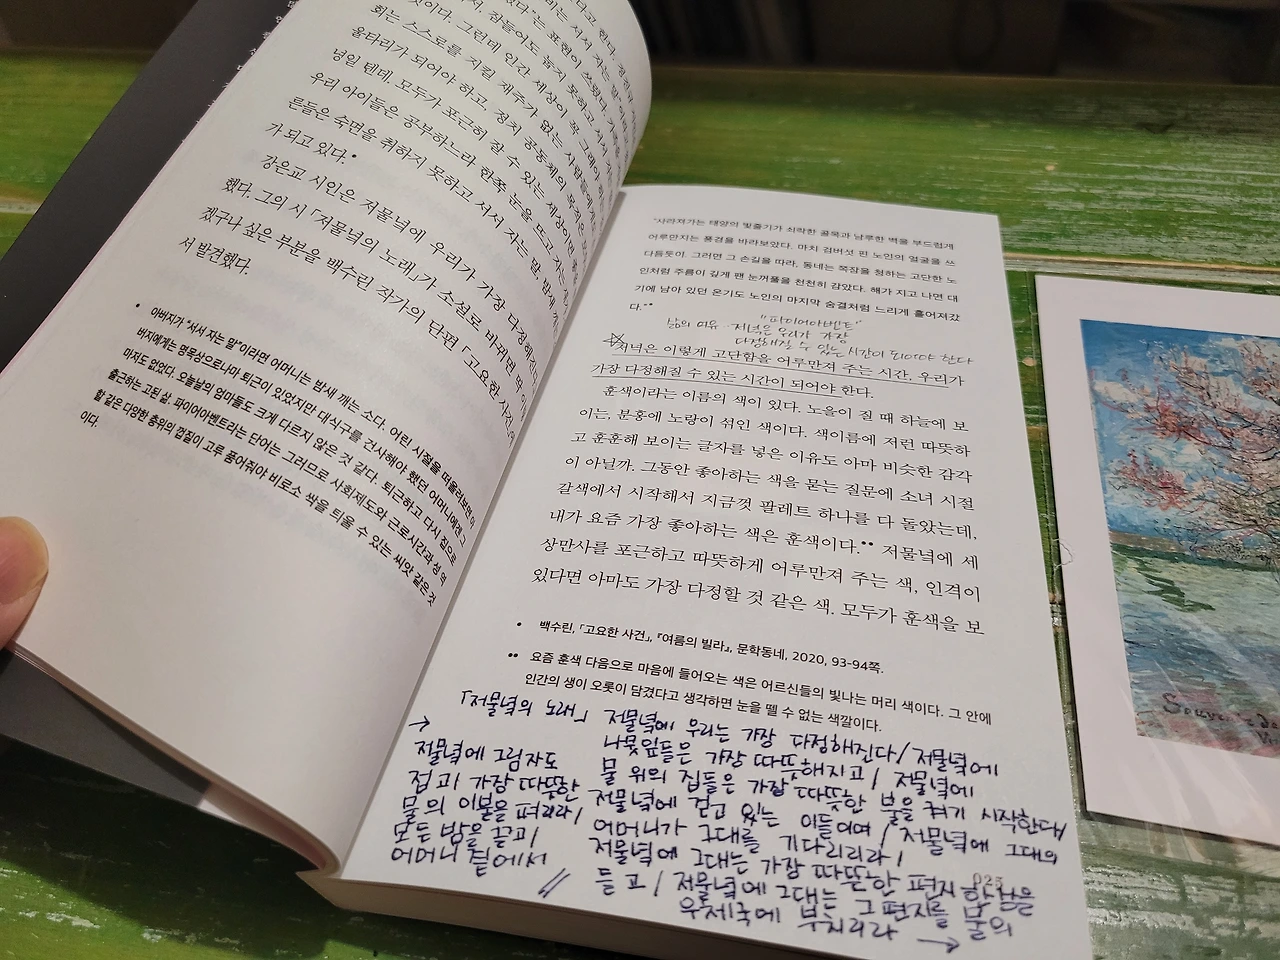 회는 스스로를 지킬 재주가 없는 사람들에게
울타리가 되어야 하고, 정치 공동체의 목적은
녕일 텐데. 모두가 포근히 잘 수 있는 세상이면
우리 아이들은 공부하느라 한쪽 눈을 뜨고 자는
른들은 숙면을 취하지 못하고 서서 자는 말, 밤새 깨는
가 되고 있다.•
강은교 시인은 저물녘에 우리가 가장 다정해진다
했다. 그의 시 「저물녘의 노래」가 소설로 바뀌면 딱
겠구나 싶은 부분을 백수린 작가의 단편 「고요한 사건」
서 발견했다.
• 아버지가 "서서 자는 말"이라면 어머니는 밤새 깨는 소다. 어린 시절을 떠올려보면 아
버지에게는 명목상으로나마 퇴근이 있었지만 대식구를 건사해야 했던 어머니에겐 그
마저도 없었다. 오늘날의 엄마들도 크게 다르지 않은 것 같다. 퇴근하고 다시 집으로
출근하는 고된 삶. 파이어아벤트라는 단어는 그러므로 사회제도와 근로시간과 성 역
할 같은 다양한 층위의 껍질이 고루 품어줘야 비로소 싹을 틔울 수 있는 씨앗 같은 것
이다.
"사라져가는 태양의 빛줄기가 쇠락한 골목과 남루한 벽을 부드럽게
어루만지는 풍경을 바라보았다. 마치 검버섯 핀 노인의 얼굴을 쓰
다듬듯이. 그러면 그 손길을 따라, 동네는 쪽잠을 청하는 고단한 노
인처럼 주름이 깊게 팬 눈꺼풀을 천천히 감았다. 해가 지고 나면 대
기에 남아 있던 온기도 노인의 마지막 숨결처럼 느리게 흩어져갔
다."•
"파이어아벤트"
저녁은 우리가 가장
다정해질 수 있는 시간이 되어야 한다
저녁은 이렇게 고단함을 어루만져 주는 시간, 우리가
가장 다정해질 수 있는 시간이 되어야 한다.
훈색이라는 이름의 색이 있다. 노을이 질 때 하늘에 보
이는, 분홍에 노랑이 섞인 색이다. 색이름에 저런 따뜻하
고 훈훈해 보이는 글자를 넣은 이유도 아마 비슷한 감각
이 아닐까. 그동안 좋아하는 색을 묻는 질문에 소녀 시절
갈색에서 시작해서 지금껏 팔레트 하나를 다 돌았는데,
내가 요즘 가장 좋아하는 색은 훈색이다.•• 저물녘에 세
상만사를 포근하고 따뜻하게 어루만져 주는 색, 인격이
있다면 아마도 가장 다정할 것 같은 색. 모두가 훈색을 보
• 백수린, 「고요한 사건」, 『여름의 빌라』, 문학동네, 2020, 93-94쪽.
•• 요즘 훈색 다음으로 마음에 들어오는 색은 어르신들의 빛나는 머리 색이다. 그 안에
인간의 생이 오롯이 담겼다고 생각하면 눈을 뗄 수 없는 색깔이다.
「저물녘의 노래」 저물녘에 우리는 가장 다정해진다/ 저물녘에
나뭇잎들은 가장 따뜻해지고/ 저물녘에
물 위의 집들은 가장 따뜻한 불을 켜기 시작한다/
저물녘에 걷고 있는 이들이여/ 저물녘에 그대의
어머니가 그대를 기다리리라/
저물녘에 그대는 가장 따뜻한 편지 한 장을
들고/ 저물녘에 그대는 그 편지를 물의
우체국에 부치리라 →
→
저물녘에 그림자도
접고/ 가장 따뜻한
물의 이불을 펴리라/
모든 밤을 끌고/
어머니 곁에서 //
025
Souvenir de